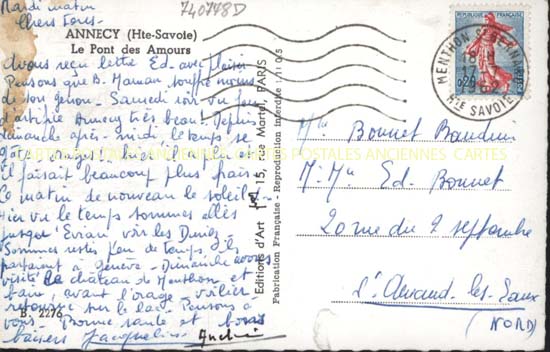 740778D
Mardi matin
Chers tous -
ANNECY (Hte-Savoie)
Le Pont des Amours
Avons reçu lettre Ed. avec plaisir
Pensons que B. Maman souffre moins
de son genou. Samedi soir vu feu
d'artifice Annecy très beau. Depuis
dimanche après-midi le temps se
gâte, orages, hier il a plu et
il faisait beaucoup plus frais.
Ce matin de nouveau le soleil.
Hier vu le temps sommes allés
jusqu'Evian voir les
Sommes restés peu de temps, ils
partaient à Genève - Dimanche avons
visité le château de Menthon et
bain, avant l'orage, voilier
retourné sur le lac. Pensons à
vous. Bonne santé et bons
baisers Jacqueline
B. 2276
Editions d'Art 15, rue Martel, PARIS
Fabrication Française - Reproduction interdite 1/105
REPUBLIQUE FRANÇAISE
MENTHON ST BERNARD
HTE SAVOIE
CARTES POSTALES ANCIENNES CARTES POSTALES ANCIENNES CARTES
Bonnet
M. Me Ed. Bonnet
20 rue du 2 septembre
St Amand-les-Eaux
(NORD)